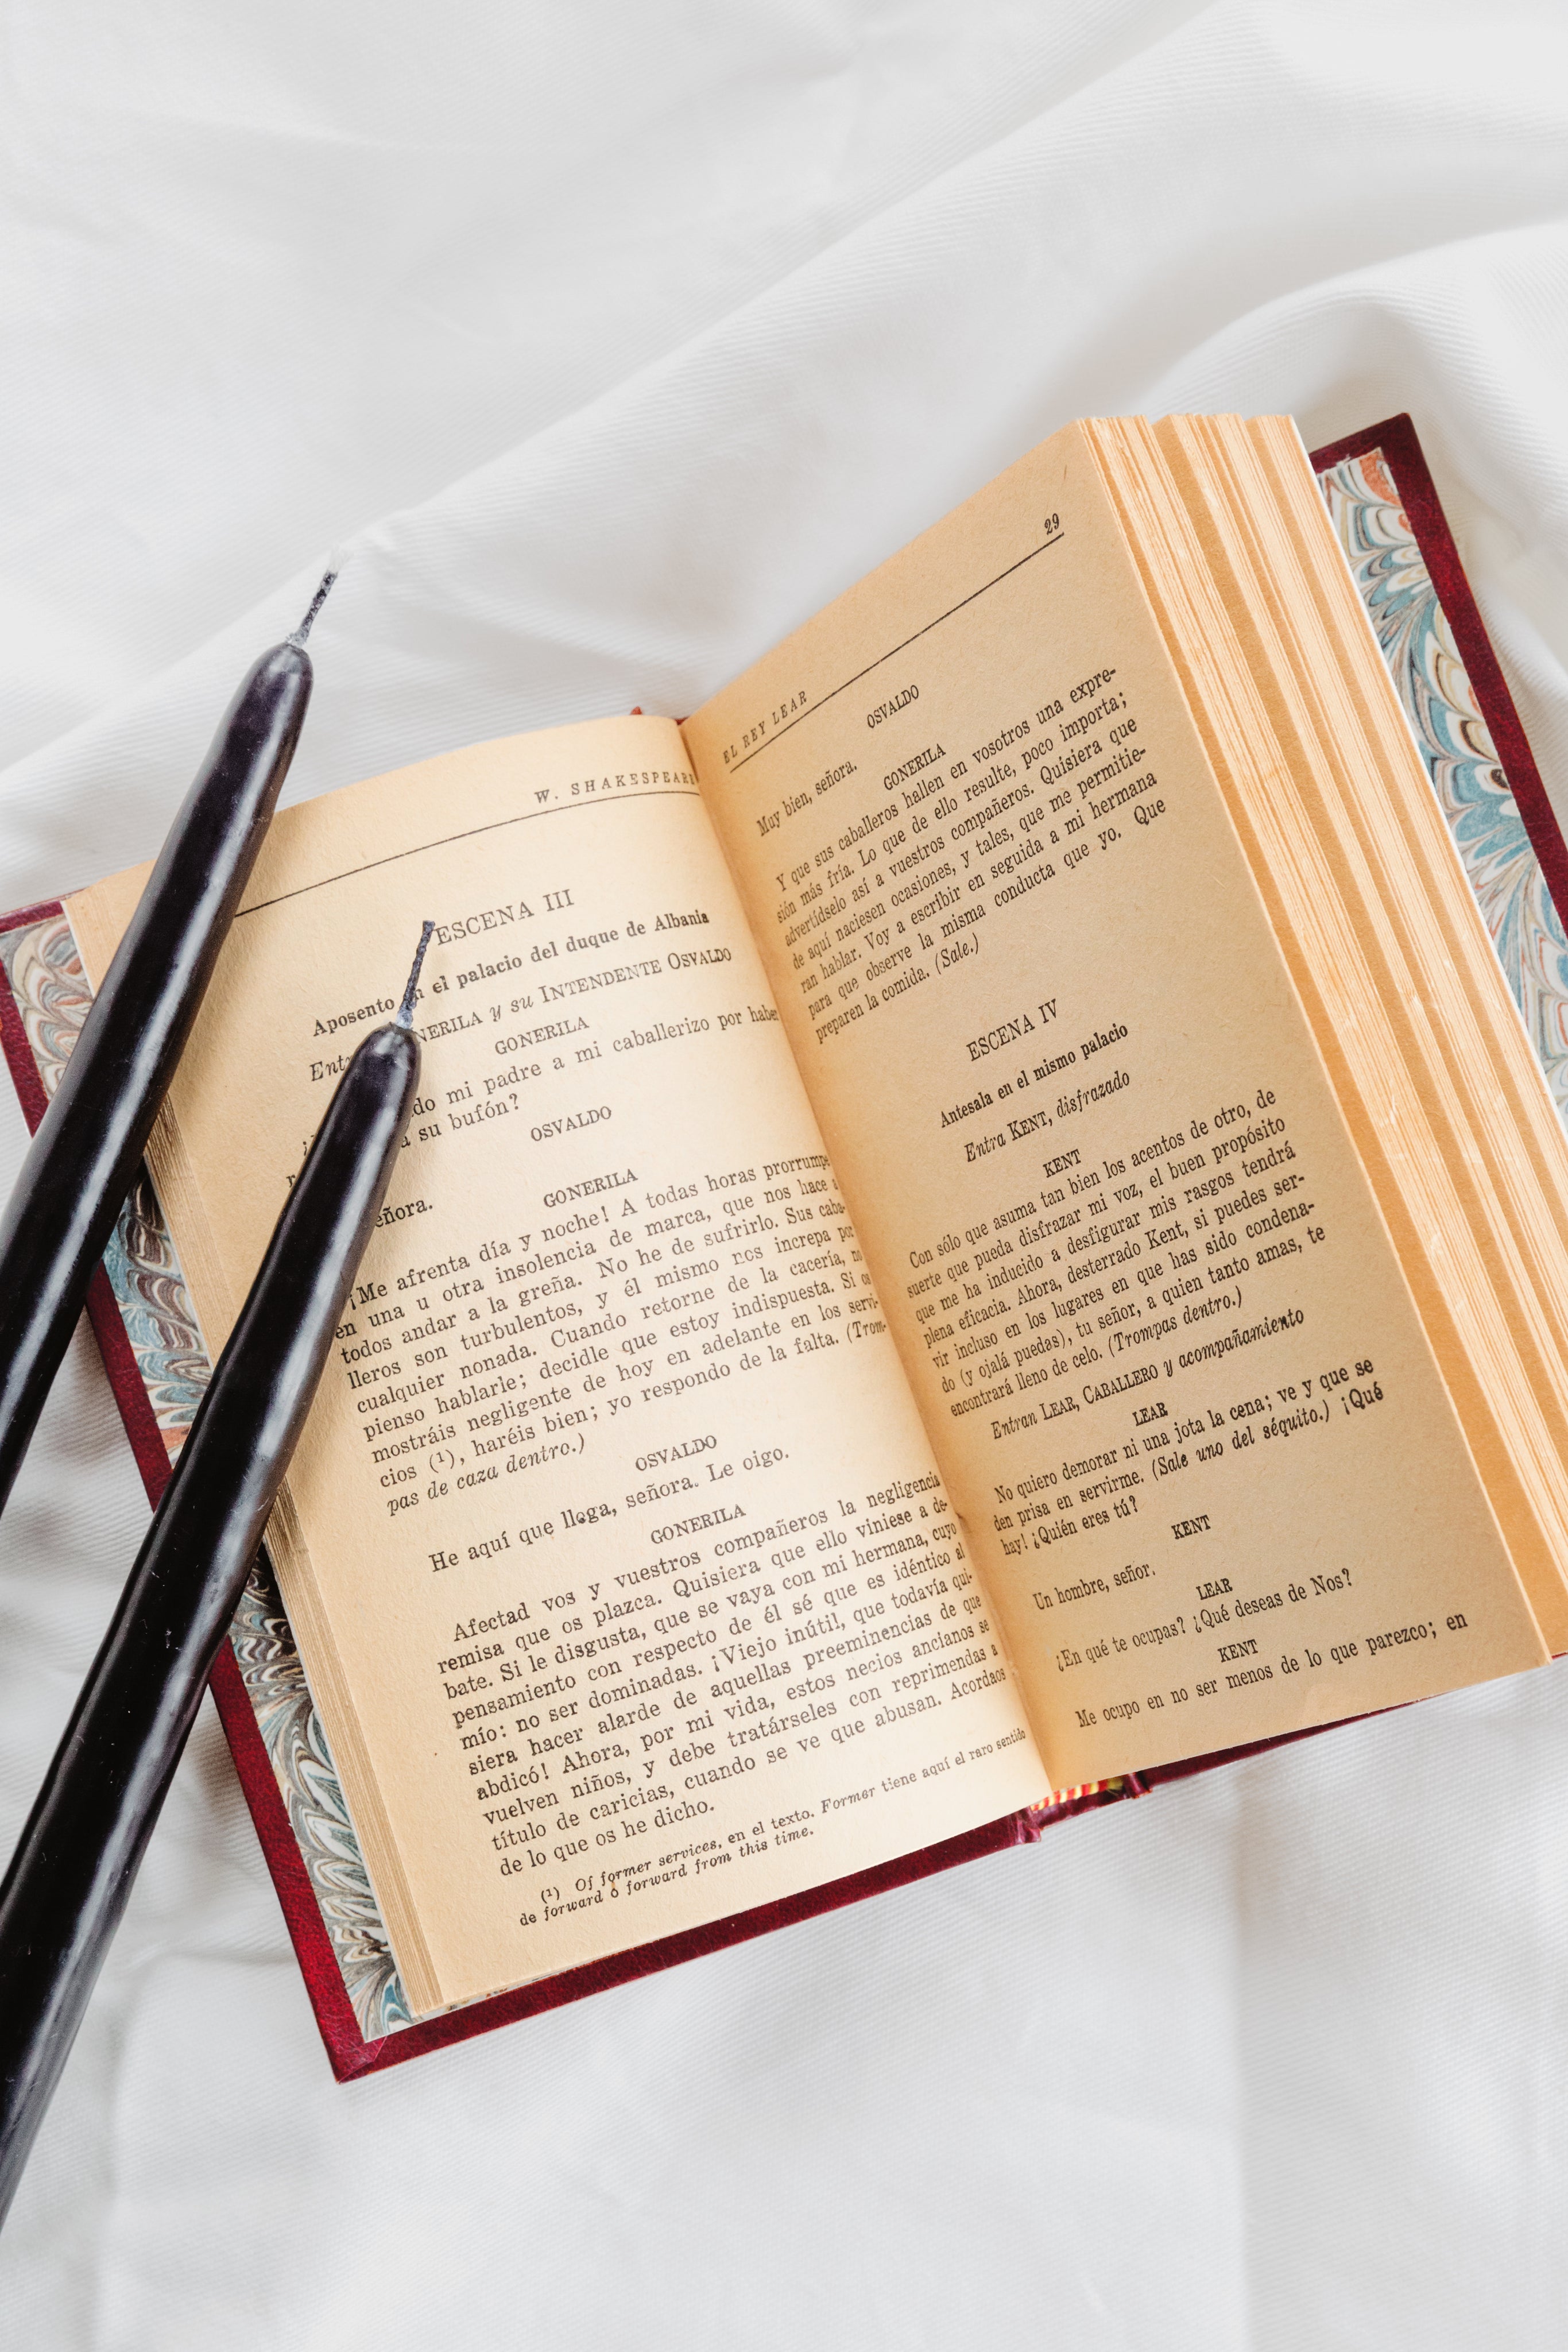 W. SHAKESPEARE
ESCENA III
Aposento en el palacio del duque de Albania
GONERILA y su INTENDENTE OSVALDO
GONERILA
mi padre a mi caballerizo por haber
su bufón?
OSVALDO
GONERILA
¡Me afrenta día y noche! A todas horas prorrumpe
en una u otra insolencia de marca, que nos hace a
todos andar a la greña. No he de sufrirlo. Sus caba-
lleros son turbulentos, y él mismo nos increpa por
cualquier nonada. Cuando retorne de la cacería, no
pienso hablarle; decidle que estoy indispuesta. Si os
mostráis negligente de hoy en adelante en los servi-
cios (¹), haréis bien; yo respondo de la falta. (Trom-
pas de caza dentro.)
OSVALDO
He aquí que llega, señora. Le oigo.
GONERILA
Afectad vos y vuestros compañeros la negligencia
remisa que os plazca. Quisiera que ello viniese a de-
bate. Si le disgusta, que se vaya con mi hermana, cuyo
pensamiento con respecto de él sé que es idéntico al
mío: no ser dominadas. ¡Viejo inútil, que todavía qui-
siera hacer alarde de aquellas preeminencias de que
abdicó! Ahora, por mi vida, estos necios ancianos se
vuelven niños, y debe tratárseles con reprimendas a
título de caricias, cuando se ve que abusan. Acordaos
de lo que os he dicho.
(¹) Of former services, en el texto. Former tiene aquí el raro sentido
de forward o forward from this time.
EL REY LEAR 29
OSVALDO
Muy bien, señora.
GONERILA
Y que sus caballeros hallen en vosotros una expre-
sión más fría. Lo que de ello resulte, poco importa;
advertídselo así a vuestros compañeros. Quisiera que
de aquí naciesen ocasiones, y tales, que me permitie-
ran hablar. Voy a escribir en seguida a mi hermana
para que observe la misma conducta que yo. Que
preparen la comida. (Sale.)
ESCENA IV
Antesala en el mismo palacio
Entra KENT, disfrazado
KENT
Con sólo que asuma tan bien los acentos de otro, de
suerte que pueda disfrazar mi voz, el buen propósito
que me ha inducido a desfigurar mis rasgos tendrá
plena eficacia. Ahora, desterrado Kent, si puedes ser-
vir incluso en los lugares en que has sido condena-
do (y ojalá puedas), tu señor, a quien tanto amas, te
encontrará lleno de celo. (Trompas dentro.)
Entran LEAR, CABALLERO y acompañamiento
LEAR
No quiero demorar ni una jota la cena; ve y que se
den prisa en servirme. (Sale uno del séquito.) ¡Qué
hay! ¿Quién eres tú?
KENT
Un hombre, señor.
LEAR
¿En qué te ocupas? ¿Qué deseas de Nos?
KENT
Me ocupo en no ser menos de lo que parezco; en